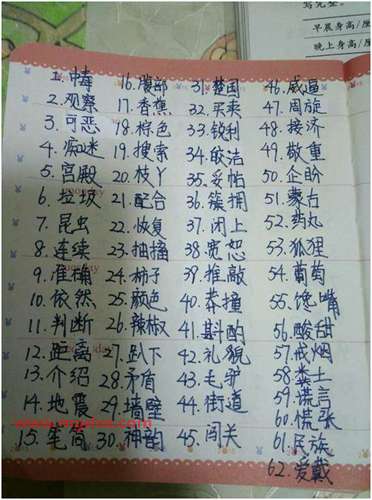 早晨身高/厘
晚上身高/厘
1. 中毒
2. 观察
3. 可恶
4. 痴迷
5. 宫殿
6. 垃圾
7. 昆虫
8. 连续
9. 准确
10. 依然
11. 判断
12. 距离
13. 介绍
14. 地震
15. 笔筒
16. 腹部
17. 香蕉
18. 棕色
19. 搜索
20. 枝丫
21. 配合
22. 恢复
23. 抽搐
24. 柿子
25. 颜色
26. 辣椒
27. 趴下
28. 矛盾
29. 墙壁
30. 神韵
31. 楚国
32. 买卖
33. 锐利
34. 皎洁
35. 妥帖
36. 簇拥
37. 闭上
38. 宽恕
39. 推敲
40. 莽撞
41. 斟酌
42. 礼貌
43. 毛驴
44. 街道
45. 闯关
46. 威逼
47. 周旋
48. 接济
49. 敬重
50. 企盼
51. 蒙古
52. 药丸
53. 狐狸
54. 葡萄
55. 馋嘴
56. 酸甜
57. 戒烟
58. 粪土
59. 谎言
60. 慌张
61. 民族
62. 爱戴